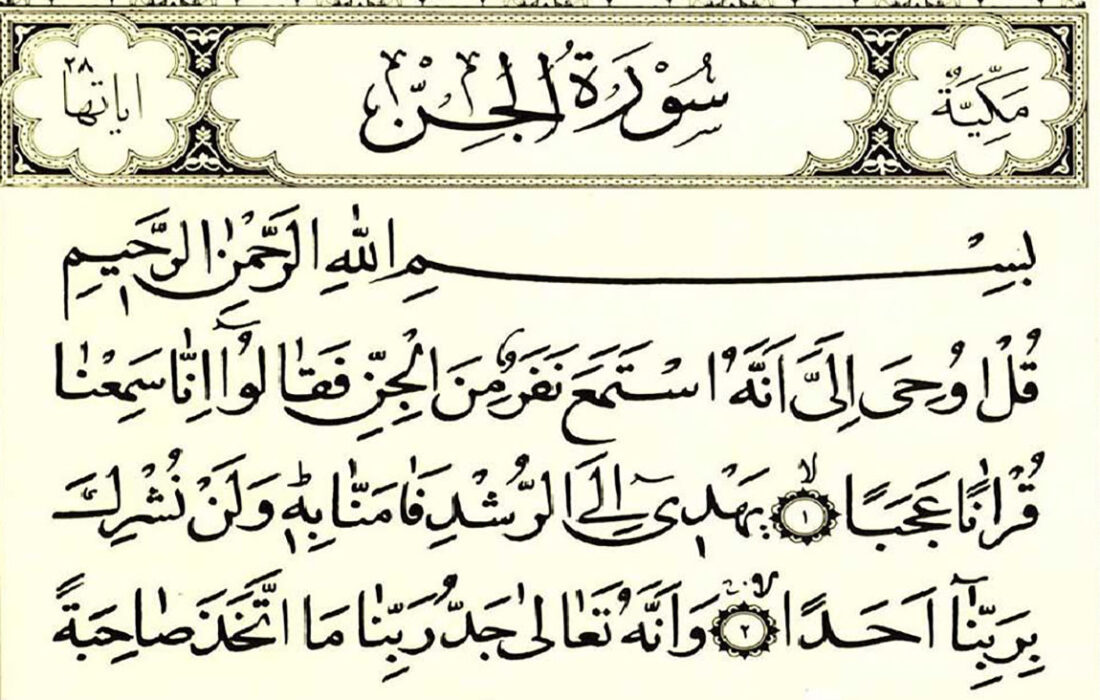 مَكِّيَّةٌ
سُورَةُ الْجِنِّ
اياتها ٢٨
بِسْمِ اللّٰهِ الرَّحْمٰنِ الرَّحِيمِ
قُلْ اُو۫حِىَ اِلَىَّ اَنَّهُ اسْتَمَعَ نَفَرٌ مِنَ الْجِنِّ فَقَالُٓوا اِنَّا سَمِعْنَا
قُرْاٰنًا عَجَبًا ۙ ﴿١﴾ يَهْد۪ٓى اِلَى الرُّشْدِ فَاٰمَنَّا بِه۪ۜ وَلَنْ نُشْرِكَ
بِرَبِّنَٓا اَحَدًا ۙ ﴿٢﴾ وَاَنَّهُ تَعَالٰى جَدُّ رَبِّنَا مَا اتَّخَذَ صَاحِبَةً